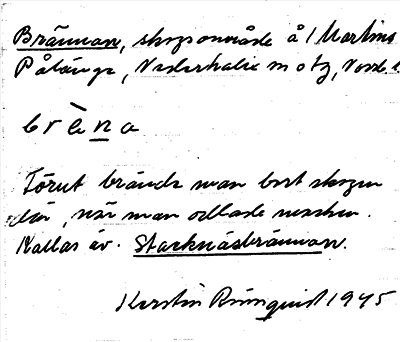 Brännan, skogsområde å 1 Martins
Pålänge, Nederkalix m o tg, Nordb.
brèna
Förut brände man bort skogen
där, när man odlade marken.
Kallas äv. Stacknäsbrännan.
Kerstin Rönnquist 1945